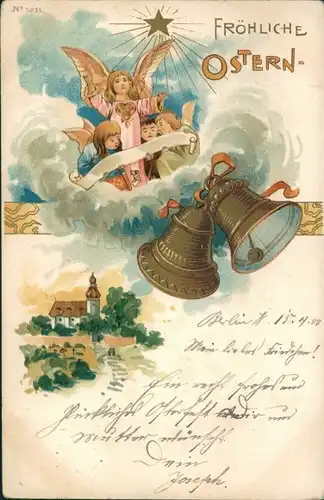 No 5231.
FRÖHLICHE
OSTERN-
Berlin N. 15.4.00
Mein liebes Friedchen!
Ein recht frohes und
glückliches Osterfest dir und
Mutter wünscht
Dein
Joseph.